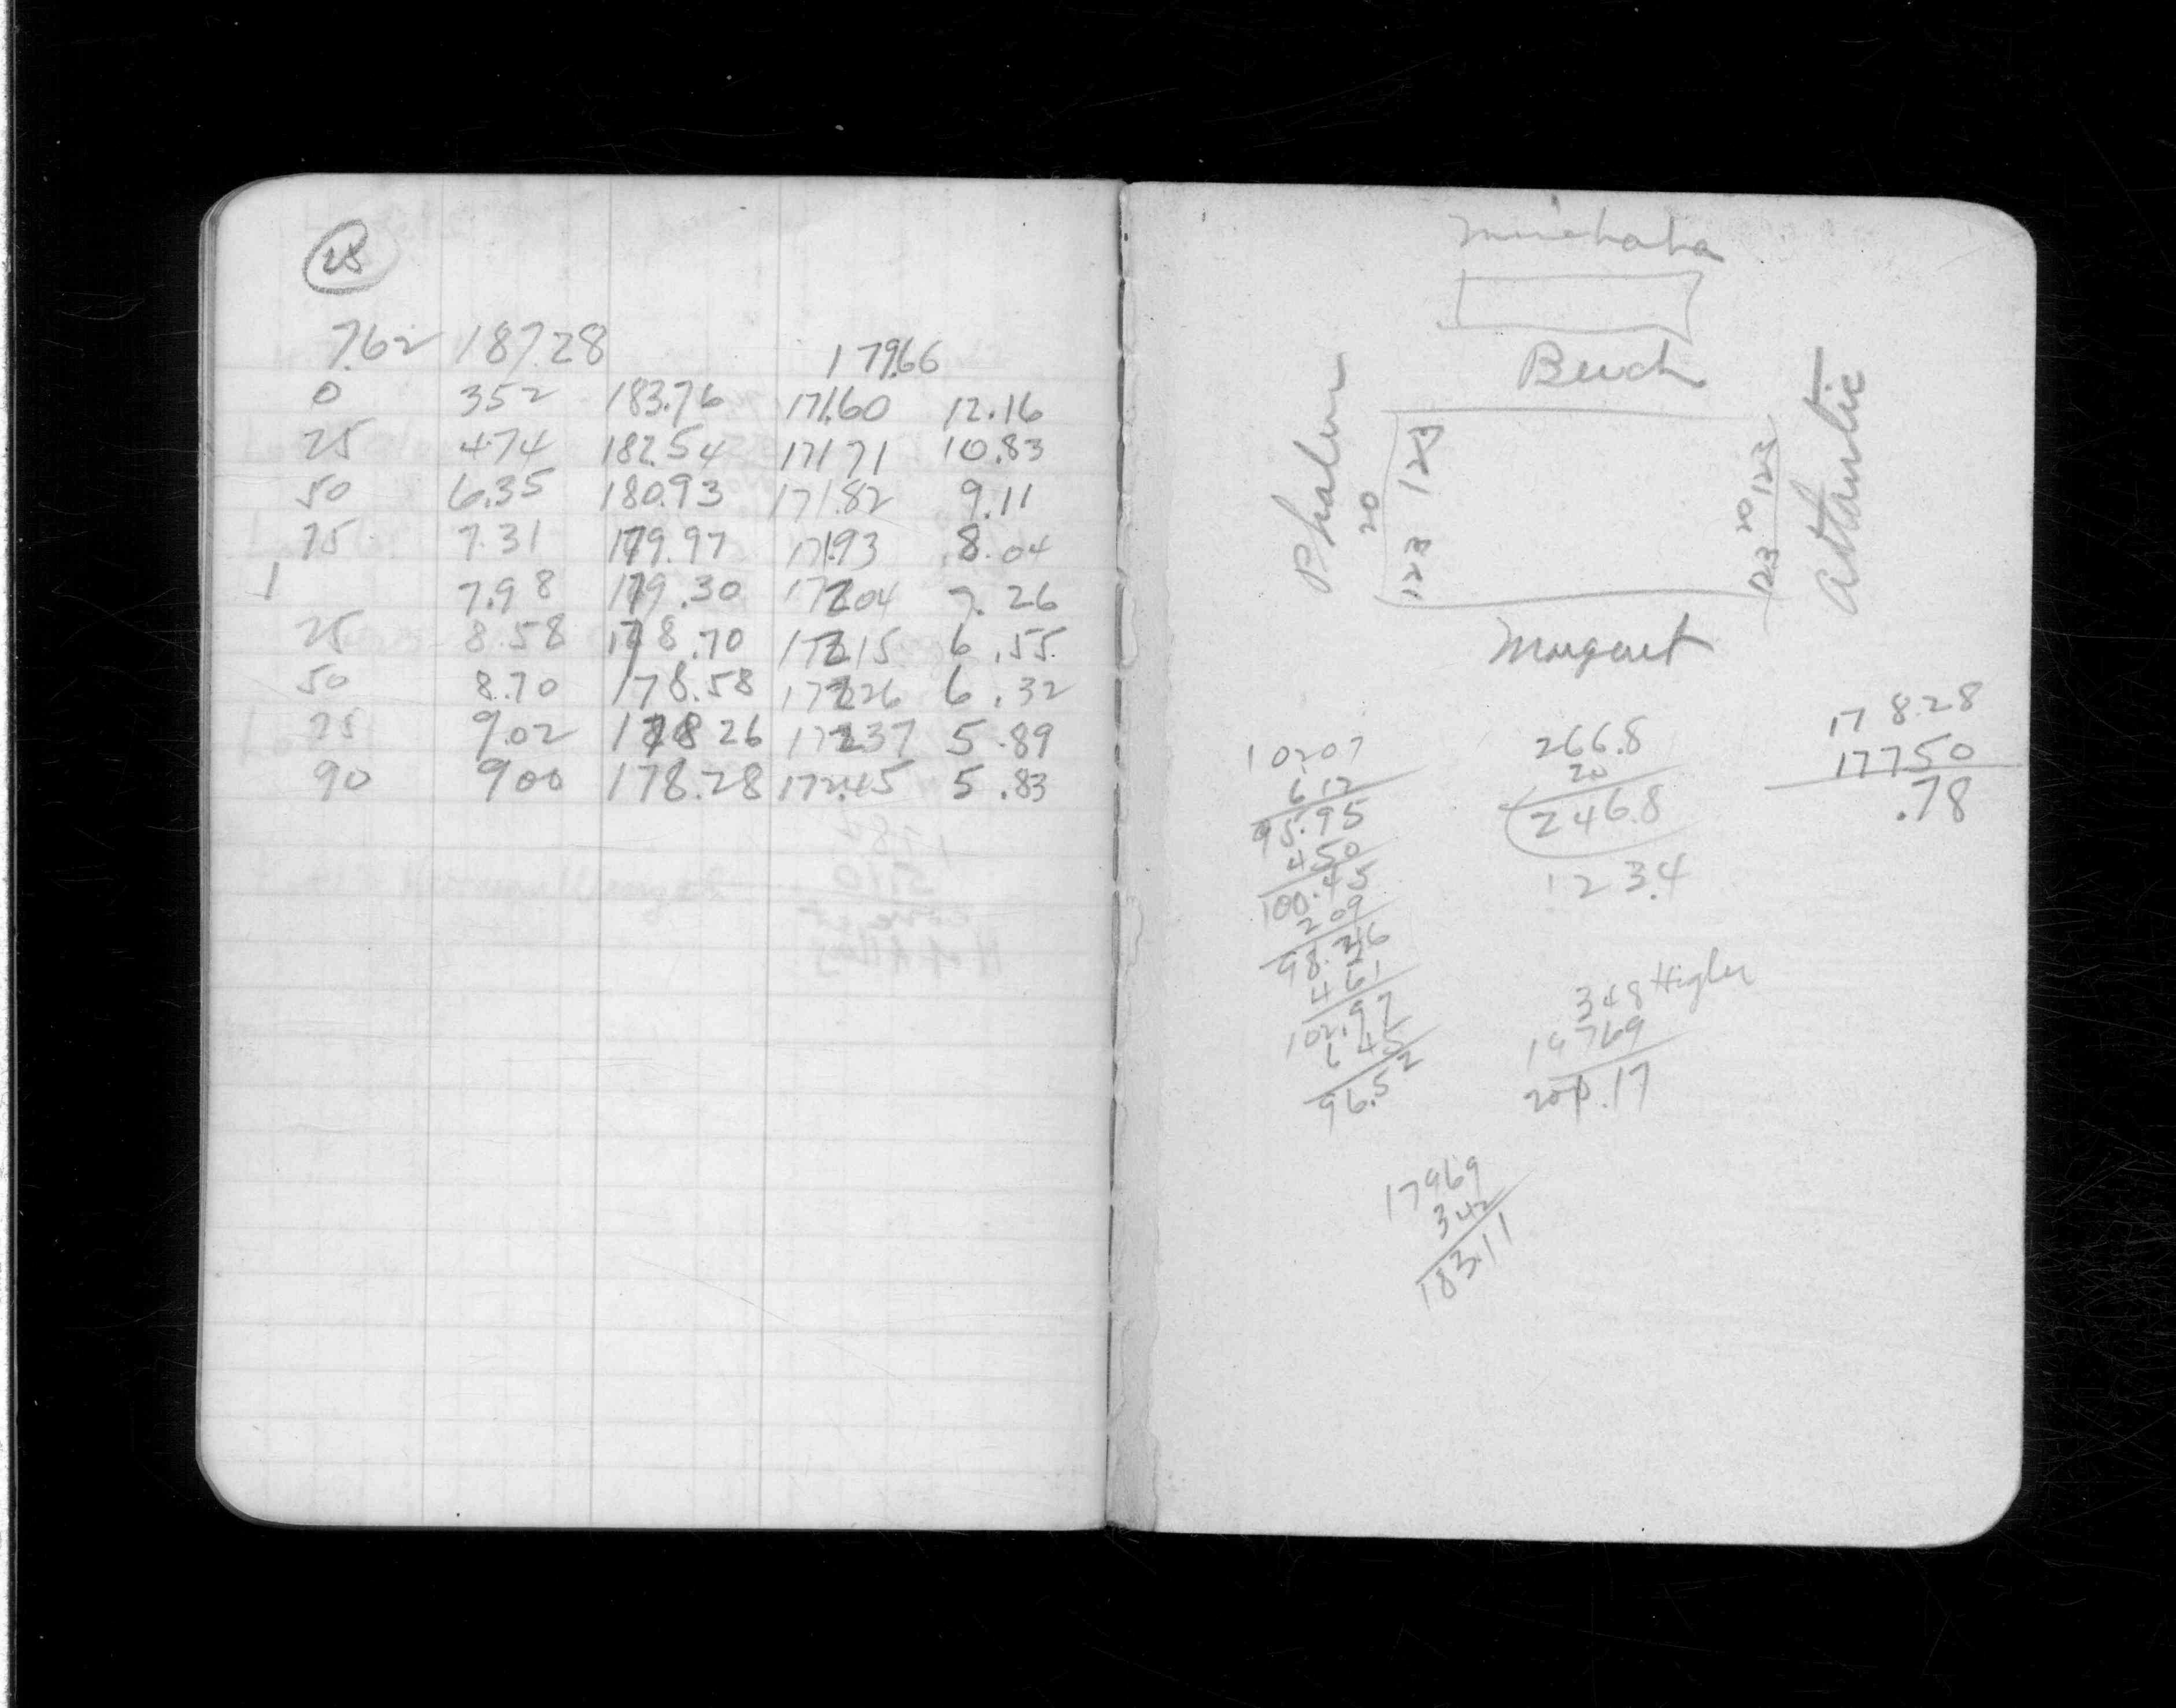 28
7.62 187.28 179.66
0 352 183.76 171.60 12.16
25 4.74 182.54 171 71 10.83
50 6.35 180.93 171.82 9.11
75 7.31 179.97 171.93 8.04
1 7.98 179.30 172 04 7.26
25 8.58 178.70 172 15 6.55
50 8.70 178.58 172 26 6.32
75 9.02 178 26 172 37 5.89
90 900 178.28 172.45 5.83
Minehaha
Beech
Phalen
20
123 123
20
123 123
Atlantic
Margaret
10207
6 12
95.95
4 50
100.45
2 09
98.36
4 61
102.97
6 45
96.52
266.8
20
246.8
123.4
178.28
17750
.78
348 Higher
19769
200.17
17969
342
183.11